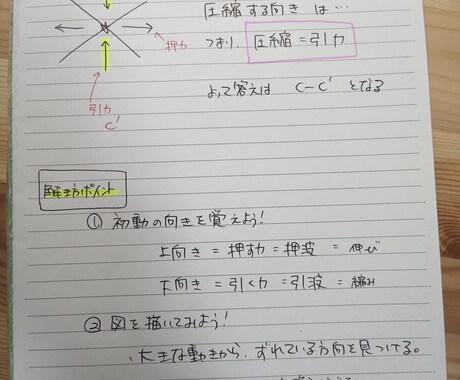 圧縮する向きは…
つまり、圧縮=引力
押力
引力
C'
よって答えは C-C' となる
解き方ポイント
① 初動の向きを覚えよう!
上向き = 押す力 = 押波 = 伸び
下向き = 引く力 = 引波 = 縮み
② 図を描いてみよう!
、大きな動きから、ずれている方向を見つける。